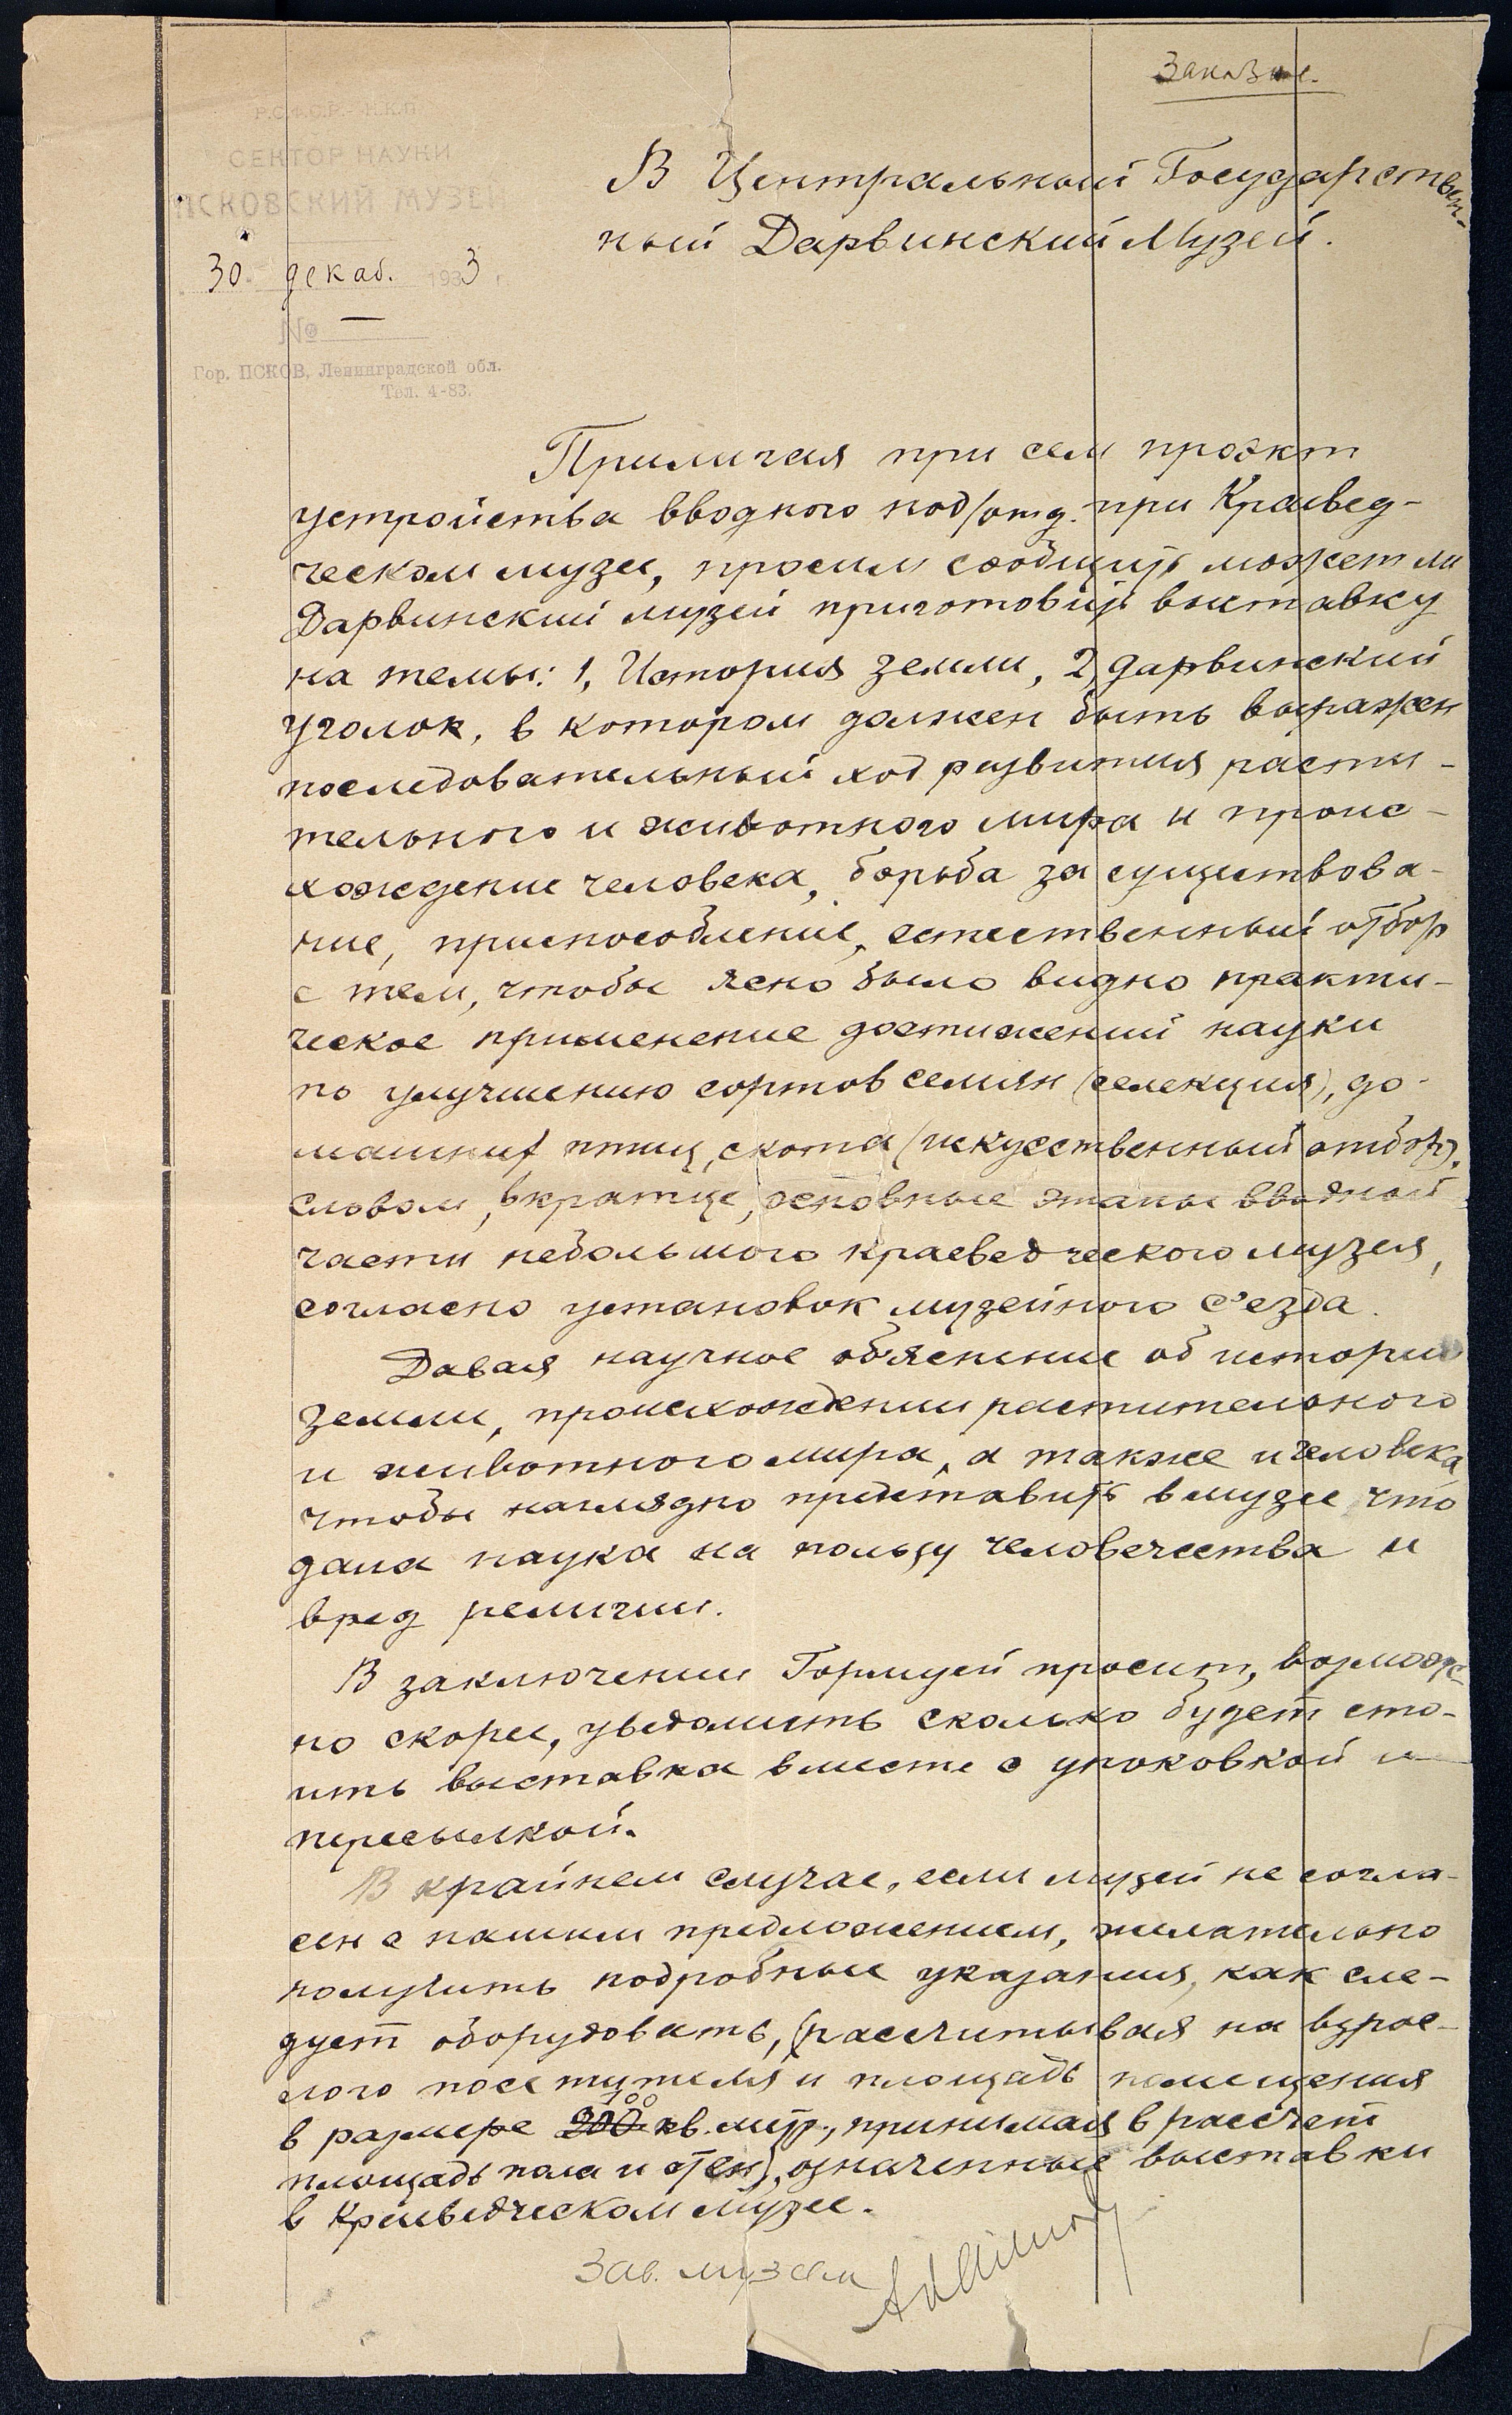 Заказное.
Р.С.Ф.С.Р. - Н.К.П.
СЕКТОР НАУКИ
ПСКОВСКИЙ МУЗЕЙ
30 декаб. 1933 г.
№ —
Гор. ПСКОВ, Ленинградской обл.
Тел. 4-83.
В Центральный Государствен-
ный Дарвинский Музей.
Прилагая при сем проэкт
устройства вводного под/отд. при Краевед-
ческом музее, просим сообщить может ли
Дарвинский музей приготовить выставку
на темы: 1, История земли, 2, дарвинский
уголок, в котором должен быть выражен
последовательный ход развития расти-
тельного и животного мира и проис-
хождение человека, борьба за существова-
ние, приспособление, естественный отбор
с тем, чтобы ясно было видно практи-
ческое применение достижений науки
по улучшению сортов семян (селекция), до-
машних птиц, скота (искусственный отбор).
Словом, вкратце, основные этапы вводной
части небольшого краеведческого музея,
согласно установок музейного с'езда.
Давая научное объяснение об истории
земли, происхождении растительного
и животного мира, а также и человека
чтобы наглядно представить в музее что
дала наука на пользу человечества и
вред религии.
В заключении Гормузей просит, возмож-
но скорее, уведомить сколько будет сто-
ить выставка вместе с упоковкой и
пересылкой.
В крайнем случае, если музей не согла-
сен с нашим предложением, желательно
получить подробные указания, как сле-
дует оборудовать, (рассчитывая на взрос-
лого посетителя и площадь помещения
100
в размере 200 кв. метр., принимая в рассчет
площадь пола и стен), означенные выставки
в Краеведческом музее.
Зав. музеем